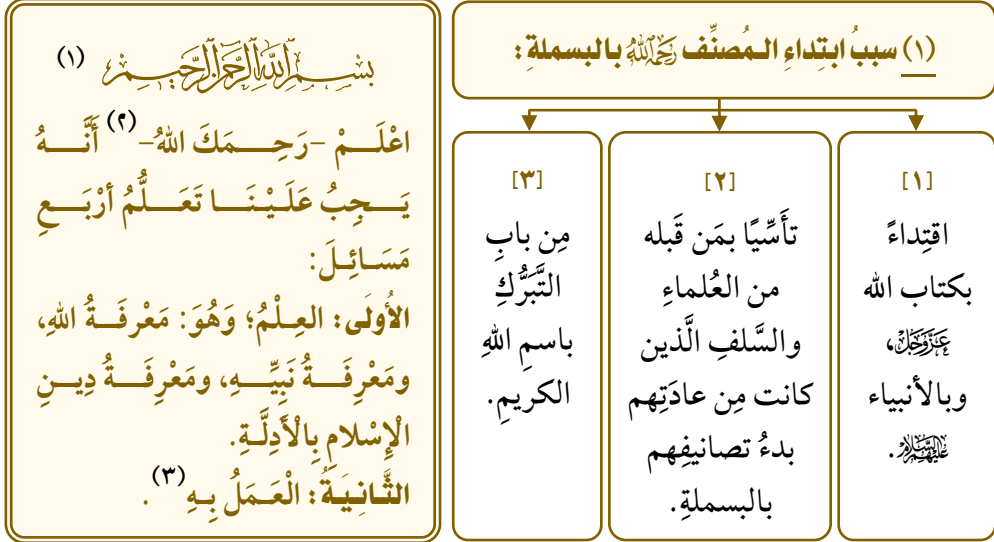 (١) سببُ ابتِداءِ الـمُصنِّف رَحِمَهُ اللَّهُ بالبسملة :
[١]
اقتِداءً
بكتاب الله
عَزَّوَجَلَّ،
وبالأنبياء
عَلَيْهِمُ السَّلَامُ.
[٢]
تأَسِّيًا بمَن قَبله
من العُلماءِ
والسَّلفِ الَّذين
كانت مِن عادَتِهم
بدءُ تصانيفِهم
بالبسملةِ.
[٣]
مِن بابِ
التَّبَرُّكِ
باسمِ اللهِ
الكريمِ.
بِسْمِ اللَّهِ الرَّحْمَٰنِ الرَّحِيمِ (١)
اعْلَـــمْ -رَحِـــمَكَ اللهُ- (٢) أَنَّـــهُ
يَـــجِبُ عَلَـيْـنَـــا تَعَـــلُّمُ أرْبَـــعِ
مَسَــائِــلَ:
الأُولَى: العِـلْمُ؛ وَهُوَ: مَعْرِفَــةُ اللهِ،
ومَعْرِفَـــةُ نَبِيِّـــهِ، ومَعْرِفَـــةُ دِيـــنِ
الْإِسْلامِ بِالْأَدِلَّــةِ.
الثَّـانِيَـةُ: الْعَـمَلُ بِــهِ (٣) .